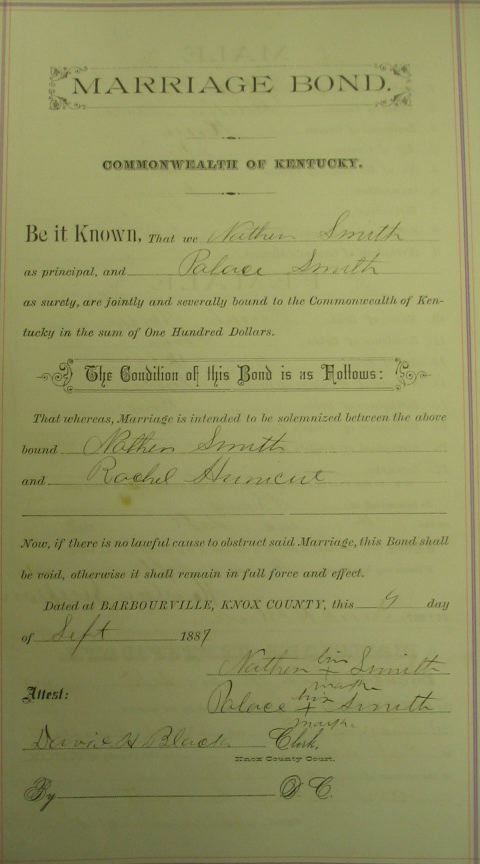 MARRIAGE BOND.
COMMONWEALTH OF KENTUCKY.
Be it Known, That we Nathen Smith
as principal, and Palace Smith
as surety, are jointly and severally bound to the Commonwealth of Ken-
tucky in the sum of One Hundred Dollars.
The Condition of this Bond is as Follows:
That whereas, Marriage is intended to be solemnized between the above
bound Nathen Smith
and Rachel
Now, if there is no lawful cause to obstruct said Marriage, this Bond shall
be void, otherwise it shall remain in full force and effect.
Dated at BARBOURVILLE, KNOX COUNTY, this 9 day
of Sept 1887
Nathen his x mark Smith
Attest:
Palace his x mark Smith
David H Black Clerk,
Knox County Court.
By D C.